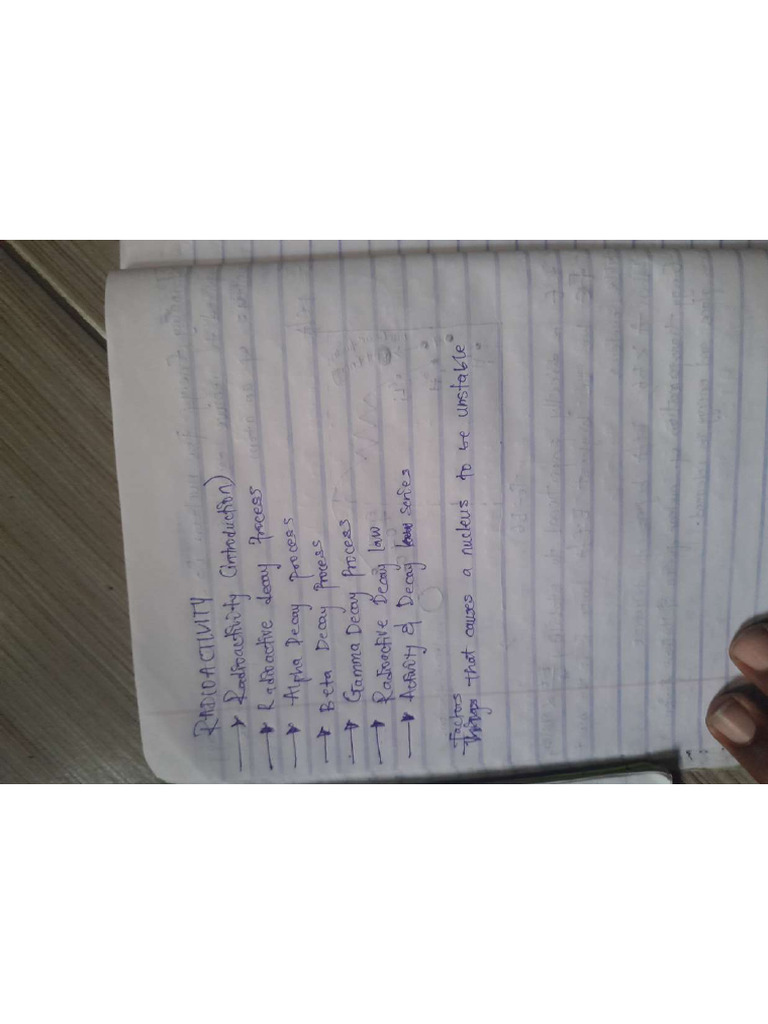 RADIOACTIVITY
→ Radioactivity (introduction)
→ Radioactive decay Process
→ Alpha Decay Process
→ Beta Decay Process
→ Gamma Decay Process
→ Radioactive Decay law
→ Activity & Decay series
Factors that causes a nucleus to be unstable